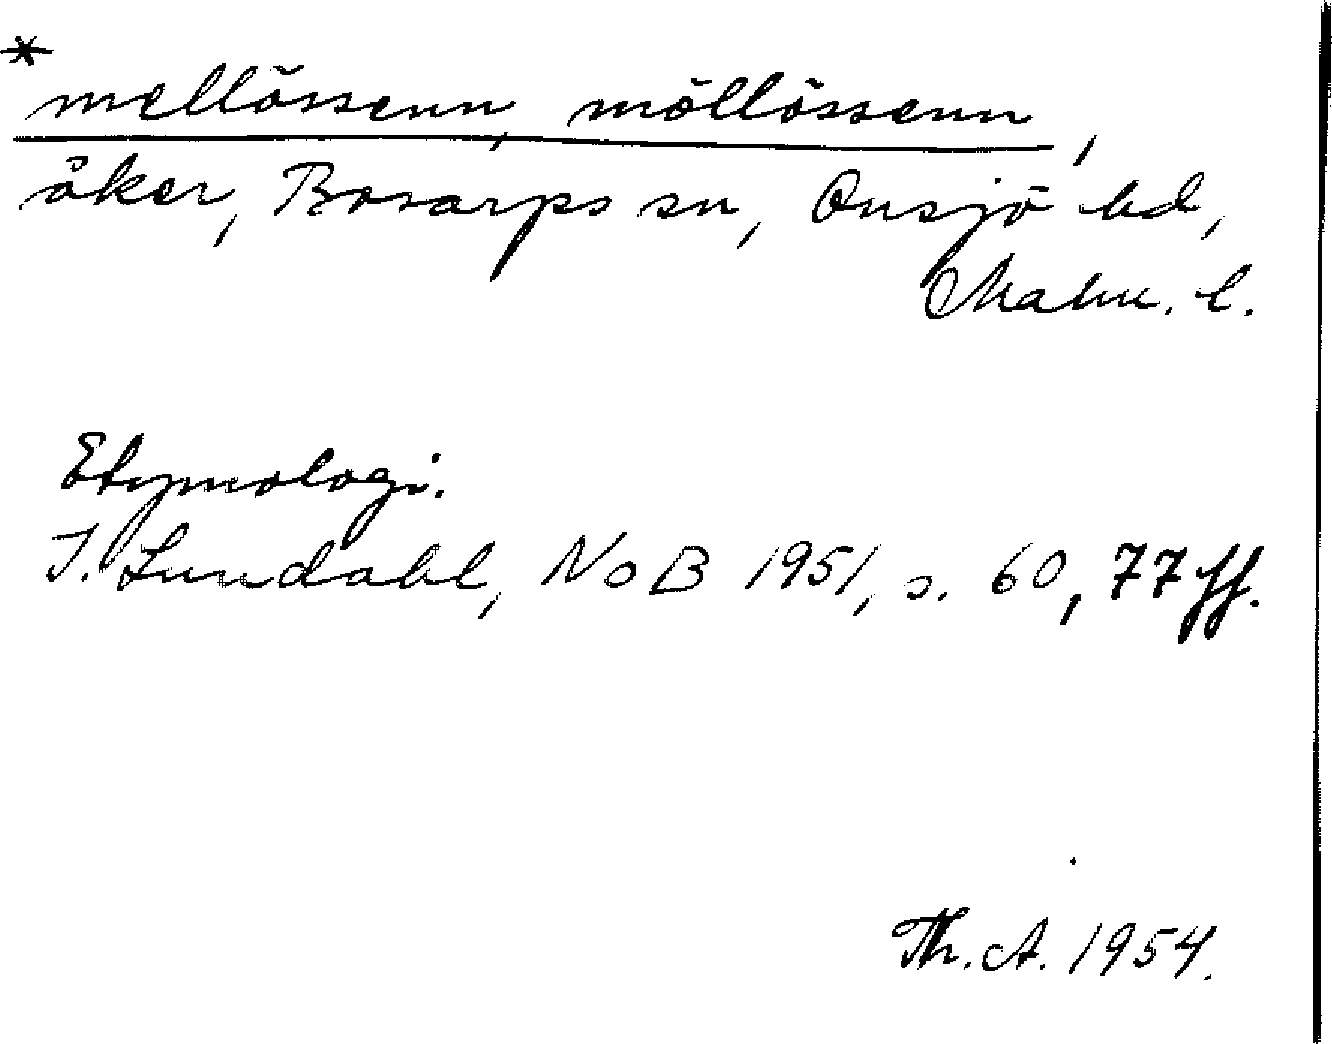 *
mellössenn, möllössenn,
åker, Bosarps sn, Onsjö hd,
Malm. l.
Etymologi.
I. Lundahl, NoB 1951, s. 60, 77 ff.
Th. A. 1954.